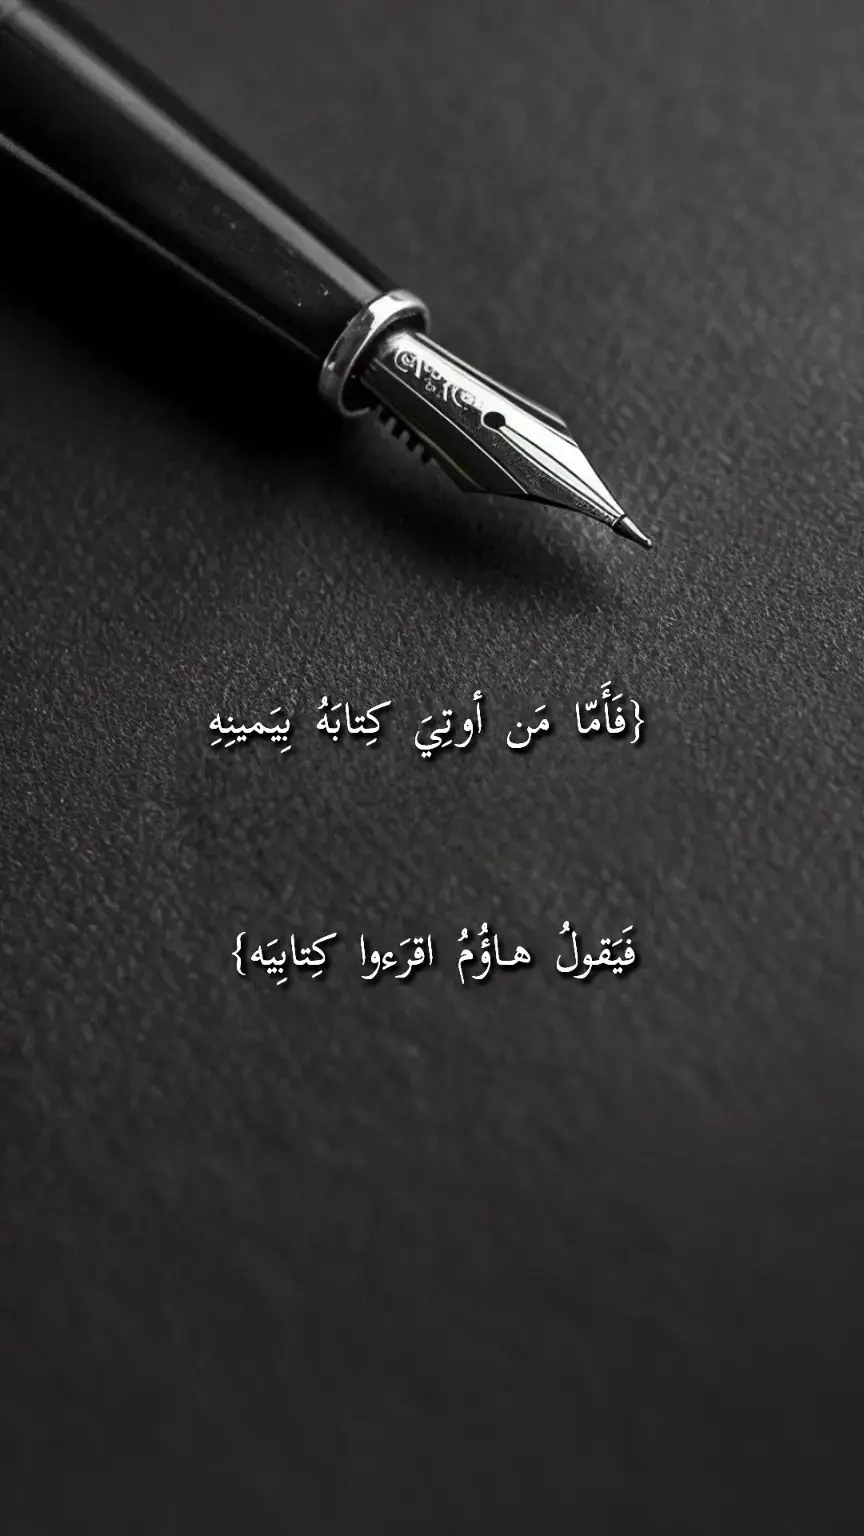 {فَأَمّا مَن أوتِيَ كِتابَهُ بِيَمينِهِ
فَيَقولُ هاؤُمُ اقرَءوا كِتابِيَه}